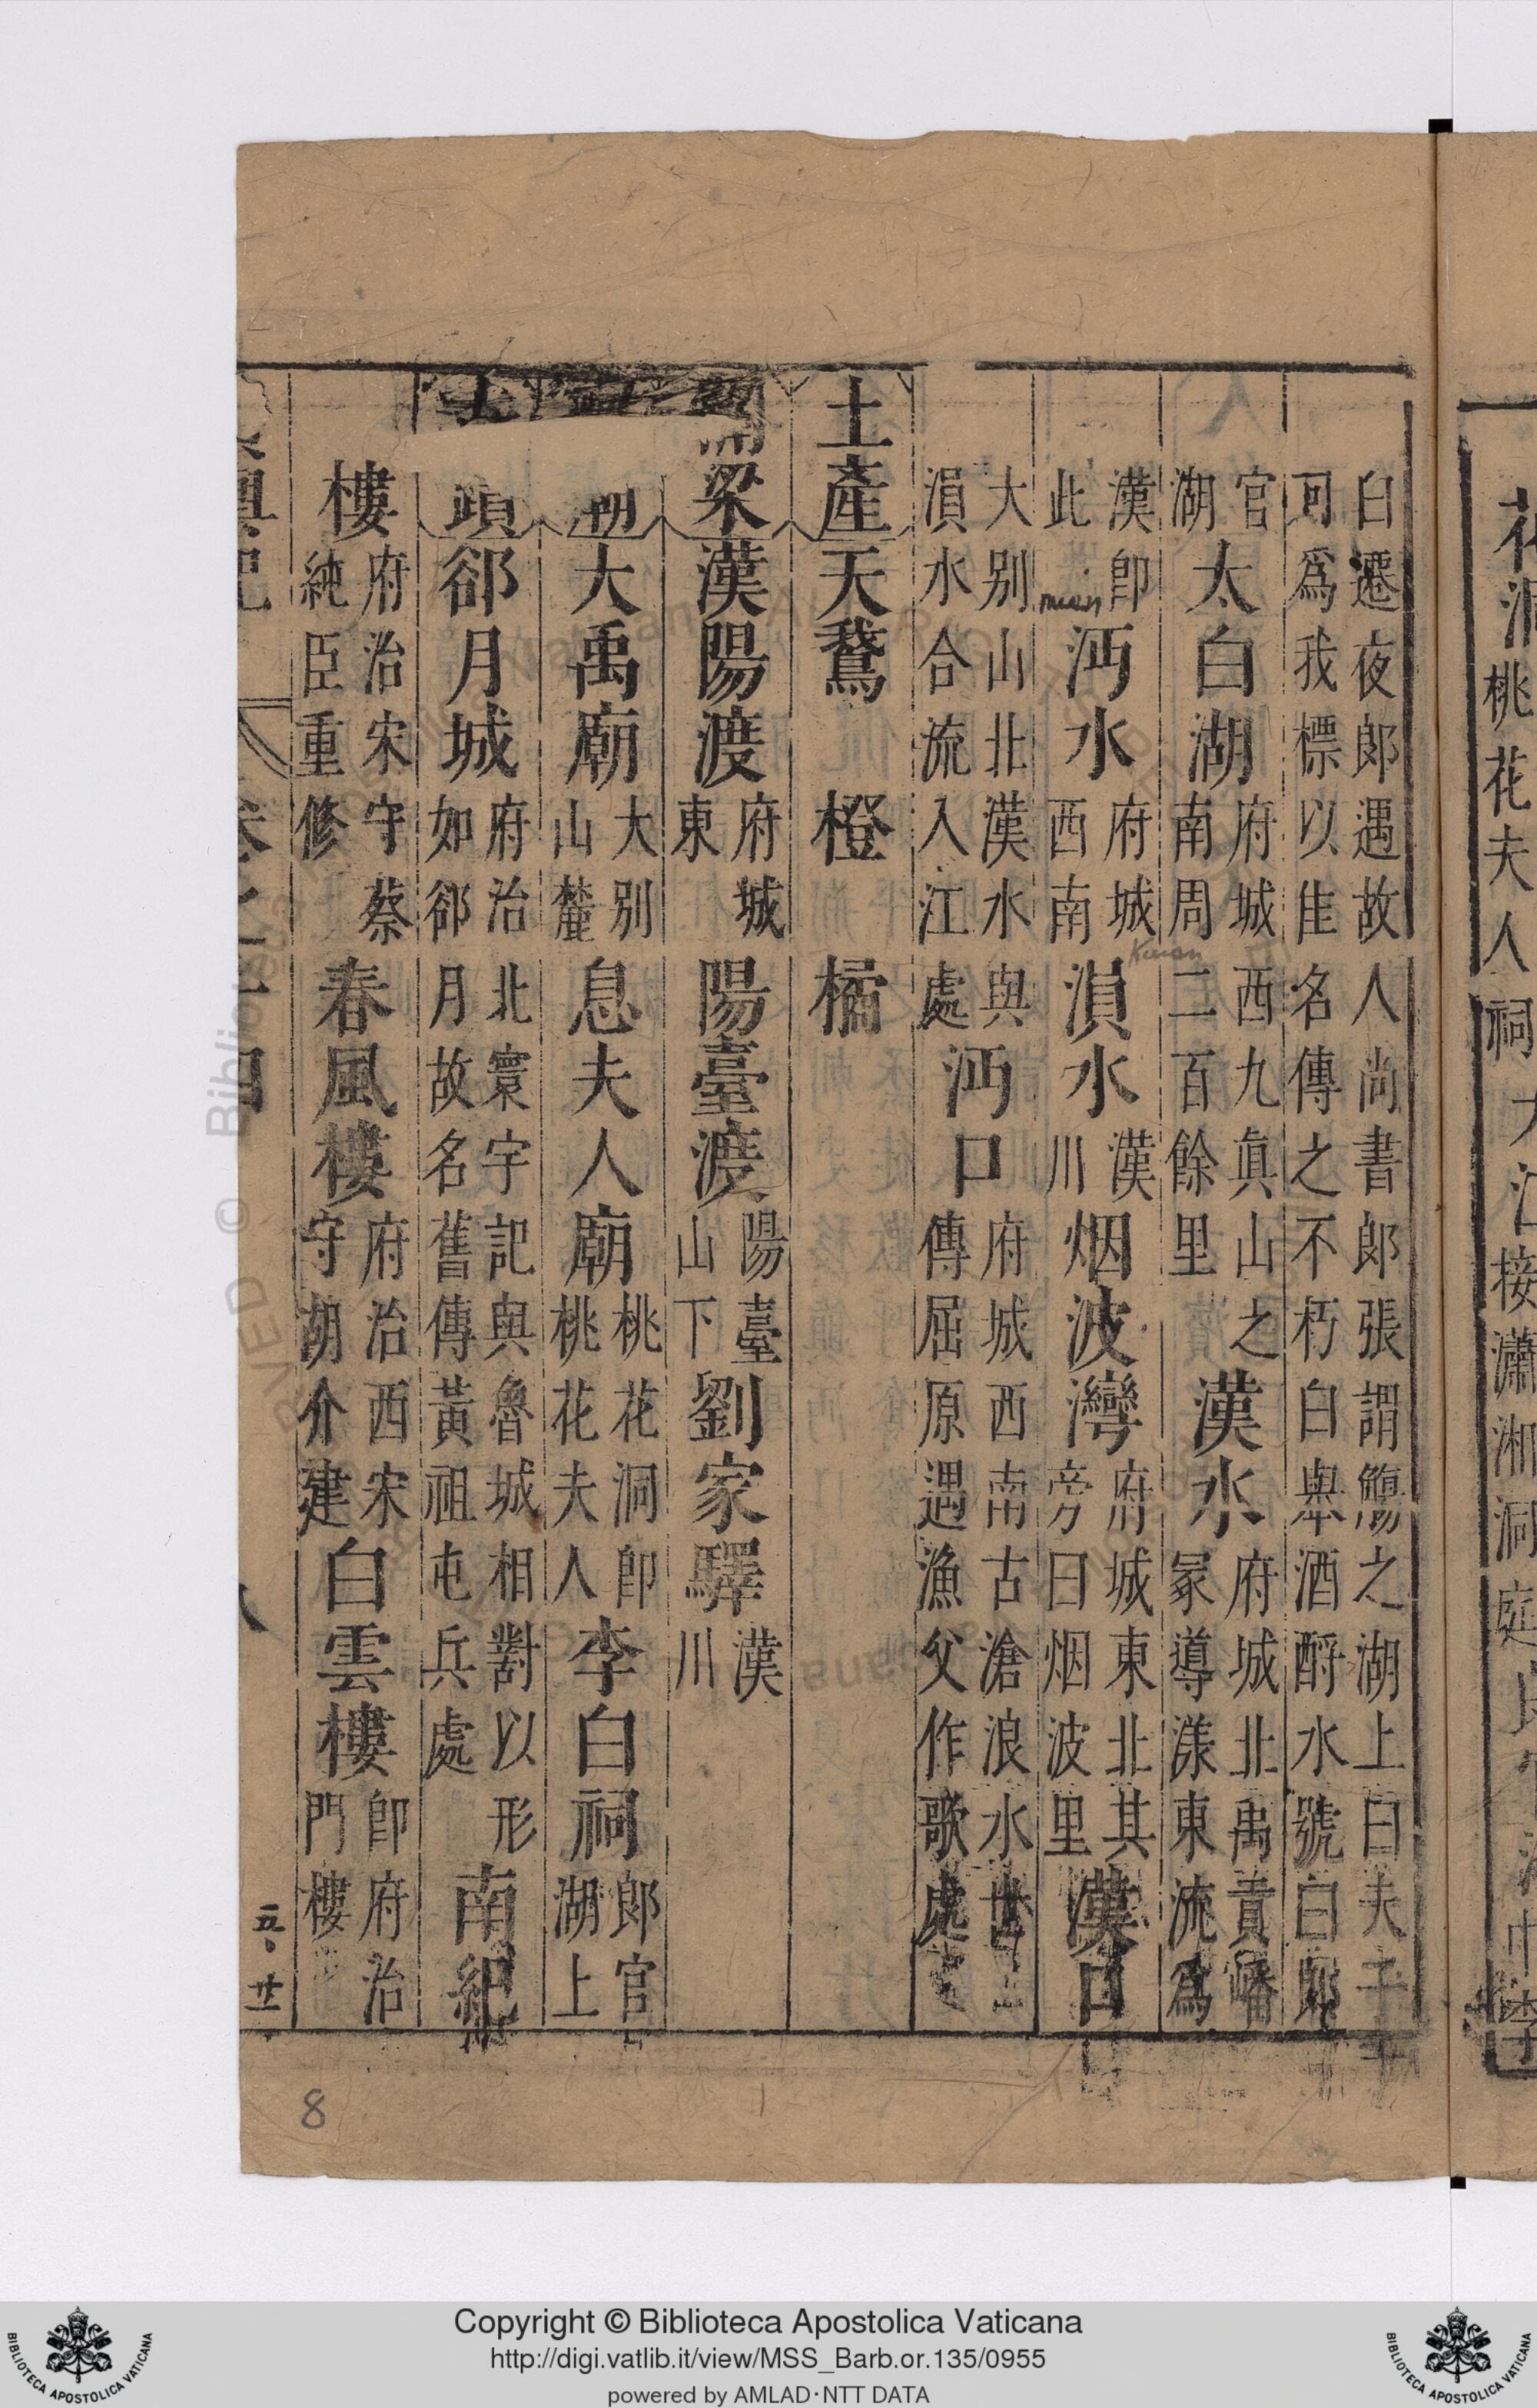 花洞桃花夫人祠大江接瀟湘洞庭
白遷夜郎遇故人尚書郎張謂觴之湖上曰夫子
可爲我標以佳名傳之不朽白舉酒酹水號曰郎
官湖太白湖府城西九眞山之南周二百餘里漢水府城北禹貢嶓冢導漾東流爲
漢即此沔水府城西南溳水漢川烟波灣府城東北其旁曰烟波里漢口
大别山北漢水與溳水合流入江處沔口府城西南古滄浪水世傳屈原遇漁父作歌處
土產天鵞 橙 橘
梁漢陽渡府城東陽臺渡陽臺山下劉家驛漢川
大禹廟大别山麓息夫人廟桃花洞即桃花夫人李白祠郎官湖上
郤月城府治北寰宇記與魯城相對以形如郤月故名舊傳黃祖屯兵處南紀
樓府治宋守蔡純臣重修春風樓府治西宋守胡介建白雲樓即府治門樓
五、廿一
mian
Kuan
8
Copyright © Biblioteca Apostolica Vaticana
http://digi.vatlib.it/view/MSS_Barb.or.135/0955
powered by AMLAD·NTT DATA
BIBLIOTECA APOSTOLICA VATICANA
BIBLIOTECA APOSTOLICA VATICANA